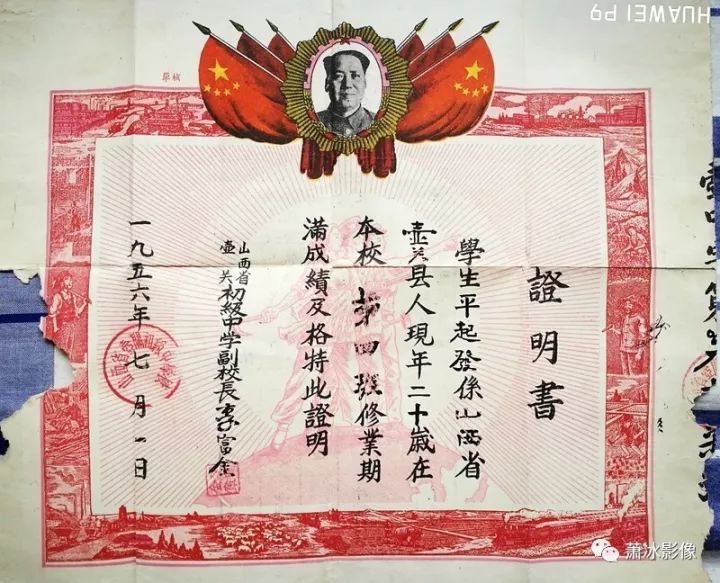 HUAWEI P9
證明書
學生平起發係山西省
壺关县人現年二十歲在
本校第四班修業期
滿成績及格特此證明
山西省
壺关初級中学副校長李富金
一九五六年七月一日
萧冰影像